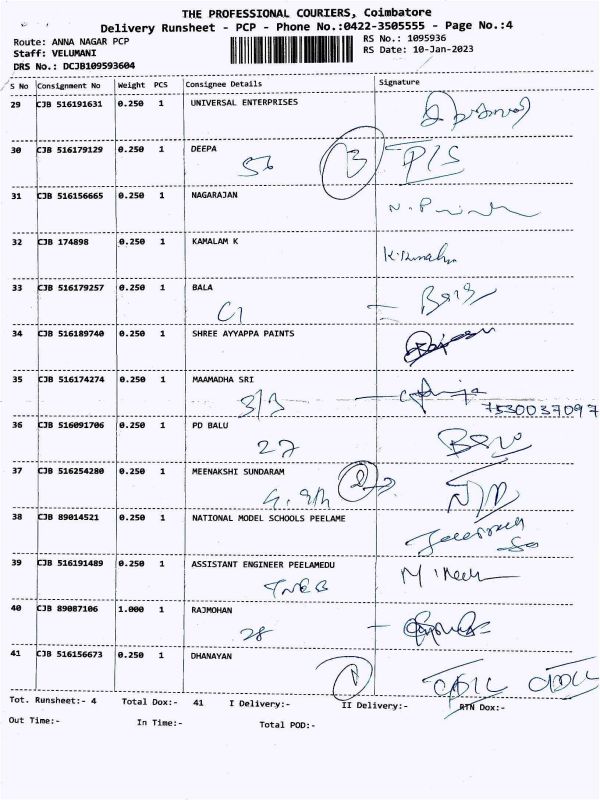 THE PROFESSIONAL COURIERS, Coimbatore
Delivery Runsheet - PCP - Phone No.:0422-3505555 - Page No.:4
Route: ANNA NAGAR PCP RS No.: 1095936
Staff: VELUMANI RS Date: 10-Jan-2023
DRS No.: DCJB109593604
S No Consignment No Weight PCS Consignee Details Signature
29 CJB 516191631 0.250 1 UNIVERSAL ENTERPRISES
30 CJB 516179129 0.250 1 DEEPA
56 13
31 CJB 516156665 0.250 1 NAGARAJAN
32 CJB 174898 0.250 1 KAMALAM K
33 CJB 516179257 0.250 1 BALA
C1
34 CJB 516189740 0.250 1 SHREE AYYAPPA PAINTS
35 CJB 516174274 0.250 1 MAAMADHA SRI
3/3 7530037097
36 CJB 516091706 0.250 1 PD BALU
27
37 CJB 516254280 0.250 1 MEENAKSHI SUNDARAM
38 CJB 89014521 0.250 1 NATIONAL MODEL SCHOOLS PEELAME
39 CJB 516191489 0.250 1 ASSISTANT ENGINEER PEELAMEDU
TNEB
40 CJB 89087106 1.000 1 RAJMOHAN
28
41 CJB 516156673 0.250 1 DHANAYAN
Tot. Runsheet:- 4 Total Dox:- 41 I Delivery:- II Delivery:- RTN Dox:-
Out Time:- In Time:- Total POD:-